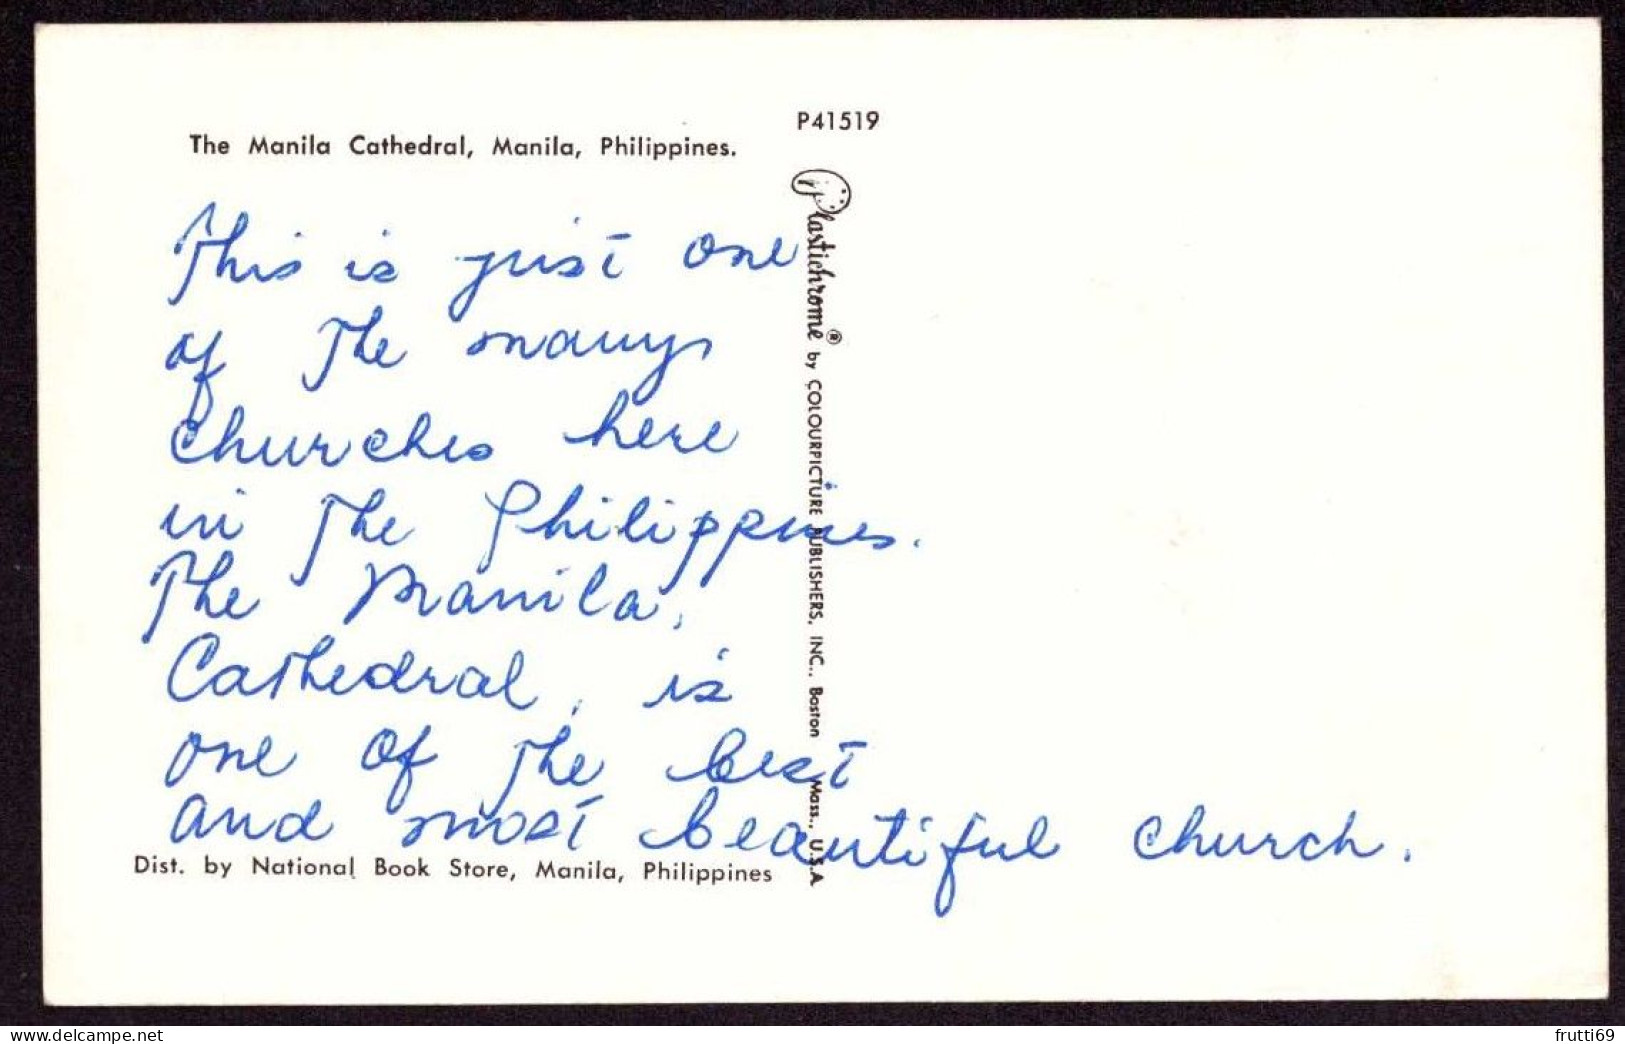 P41519
The Manila Cathedral, Manila, Philippines.
This is just one
of the many
churches here
in the Philippines.
The Manila,
Cathedral, is
one of the best
and most beautiful church.
Dist. by National Book Store, Manila, Philippines
Plastichrome® by COLOURPICTURE PUBLISHERS, INC., Boston Mass., U.S.A
www.delcampe.net
frutti69